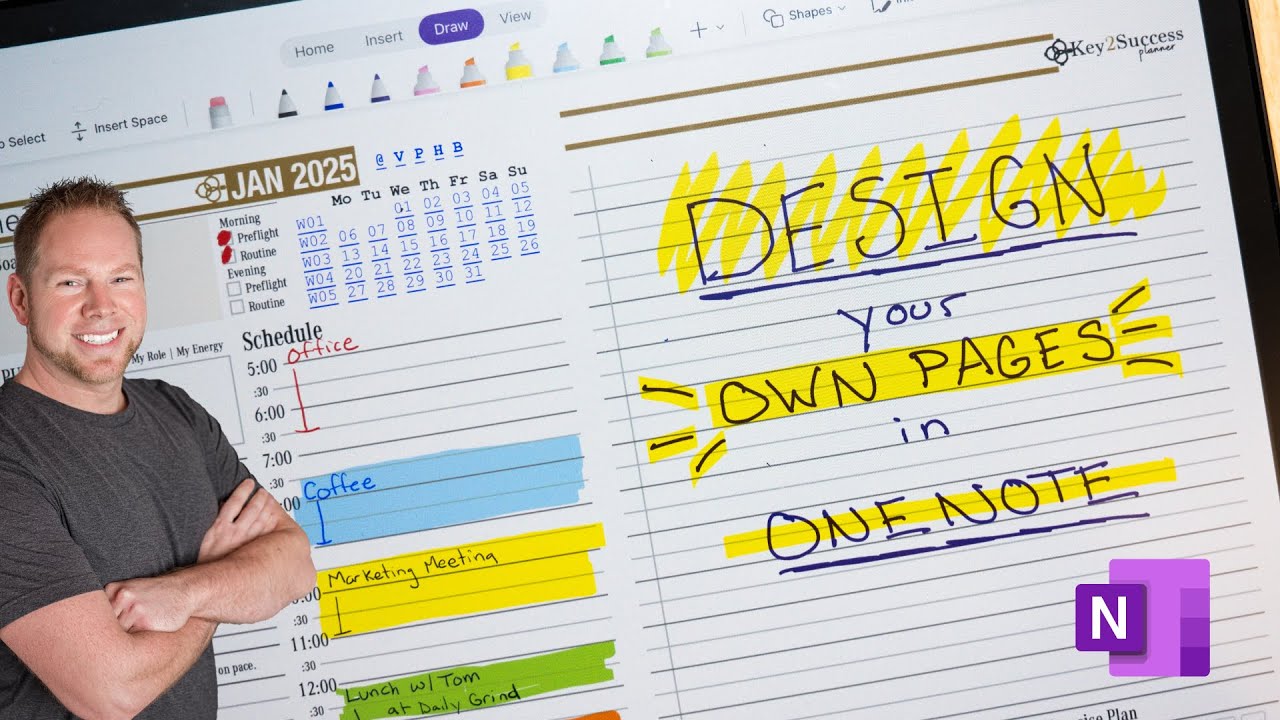 Home Insert Draw View
Select Insert Space Shapes
Key2Success
planner
JAN 2025
@ V P H B
Mo Tu We Th Fr Sa Su
W01 01 02 03 04 05
W02 06 07 08 09 10 11 12
W03 13 14 15 16 17 18 19
W04 20 21 22 23 24 25 26
W05 27 28 29 30 31
Morning
Preflight
Routine
Evening
Preflight
Routine
My Role | My Energy
Schedule
5:00 Office
:30
6:00
:30
7:00
:30
:00 Coffee
Marketing Meeting
:00
:30
11:00
:30
on pace.
12:00 Lunch w/ Tom
:30 at Daily Grind
DESIGN
your
OWN PAGES
in
ONENOTE
N
Plan